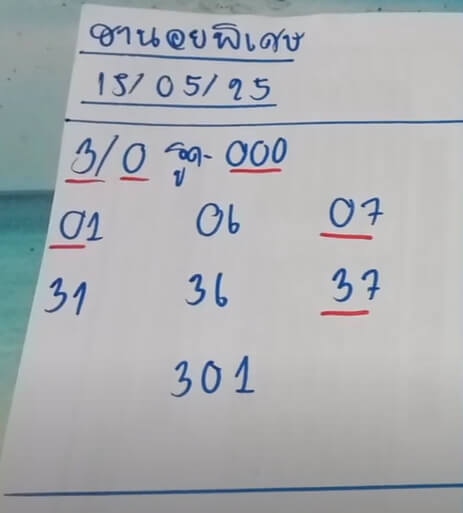 ฮานอยพิเศษ
15/05/25
3/0 รูด- 000
01 06 07
31 36 37
301